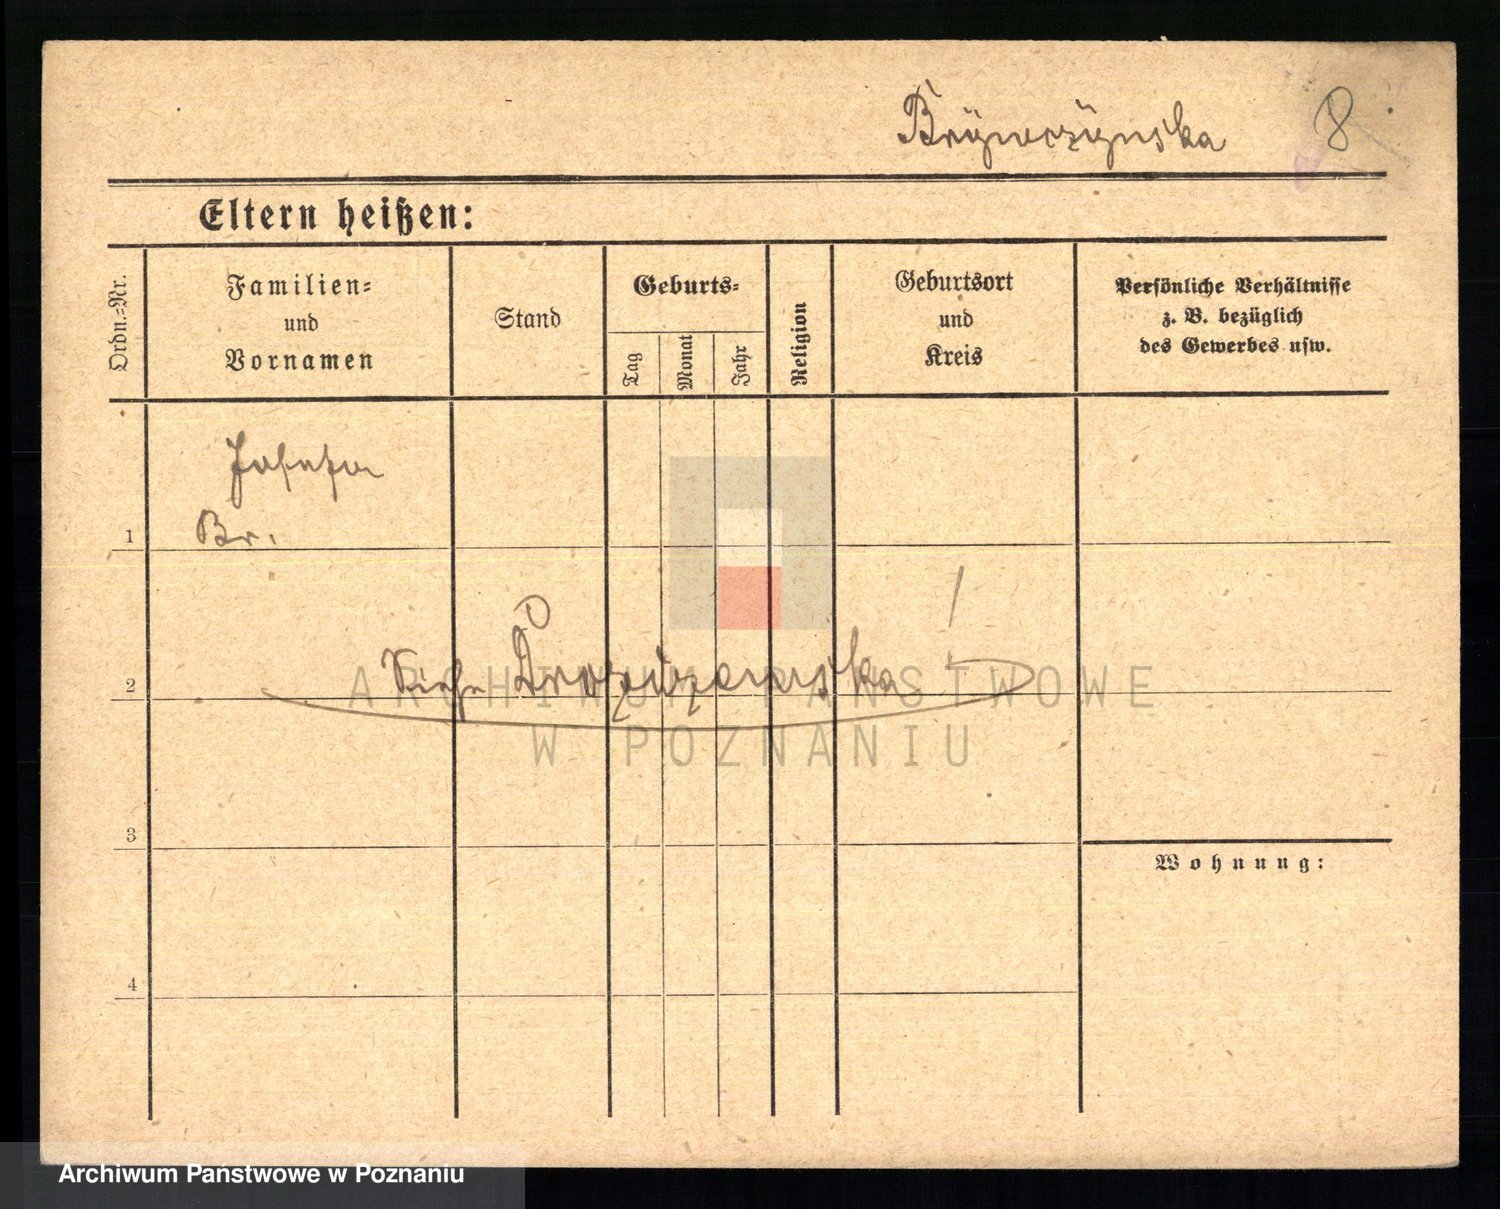 8
Eltern heißen:
Ordn.=Nr.
Familien=
und
Vornamen
Stand
Geburts=
Tag
Monat
Jahr
Religion
Geburtsort
und
Kreis
Persönliche Verhältnisse
z. B. bezüglich
des Gewerbes usw.
Josefa
Br.
1
Siehe
2
3
4
Wohnung:
ARCHIWUM PAŃSTWOWE
W POZNANIU
Archiwum Państwowe w Poznaniu